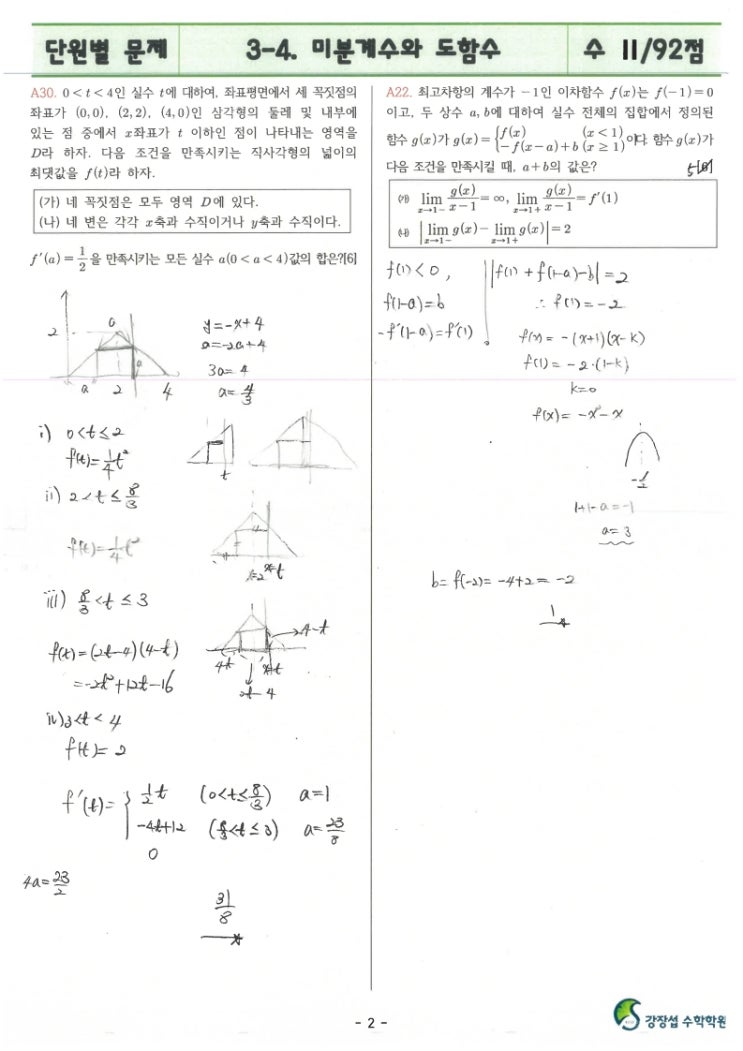 단원별 문제
3-4. 미분계수와 도함수
수 II/92점
A30. 0<t<4인 실수 t에 대하여, 좌표평면에서 세 꼭짓점의
좌표가 (0,0), (2,2), (4,0)인 삼각형의 둘레 및 내부에
있는 점 중에서 x좌표가 t 이하인 점이 나타내는 영역을
D라 하자. 다음 조건을 만족시키는 직사각형의 넓이의
최댓값을 f(t)라 하자.
(가) 네 꼭짓점은 모두 영역 D에 있다.
(나) 네 변은 각각 x축과 수직이거나 y축과 수직이다.
f'(a)=1/2을 만족시키는 모든 실수 a(0<a<4)값의 합은?[6]
2
a
a
a 2 4
y=-x+4
a=-2a+4
3a=4
a=4/3
i) 0<t≤2
f(t)=1/4t²
t
ii) 2<t≤8/3
f(t)=1/4t²
iii) 8/3<t≤3
f(t)=(2t-4)(4-t)
=-2t²+12t-16
4-t
2t-4
iv) 3<t<4
f(t)=2
f'(t)= { 1/2t (0<t≤8/3) a=1
-4t+12 (8/3<t≤3) a=23/8
0
4a=23/2
31/8
A22. 최고차항의 계수가 -1인 이차함수 f(x)는 f(-1)=0
이고, 두 상수 a, b에 대하여 실수 전체의 집합에서 정의된
함수 g(x)가 g(x)={f(x) (x<1) -f(x-a)+b (x≥1)이다. 함수 g(x)가
다음 조건을 만족시킬 때, a+b의 값은?
(가) lim x→1- g(x)/x-1=∞, lim x→1+ g(x)/x-1=f'(1)
(나) |lim x→1- g(x)- lim x→1+ g(x)|=2
f(1)<0,
f(1-a)=b
-f'(1-a)=f'(1)
|f(1)+f(1-a)-b|=2
∴ f(1)=-2
f(x)=-(x+1)(x-k)
f(1)=-2·(1-k)
k=0
f(x)=-x²-x
-1/2
1+1-a=-1
a=3
b=f(-2)=-4+2=-2
1
- 2 -
강장섭 수학학원